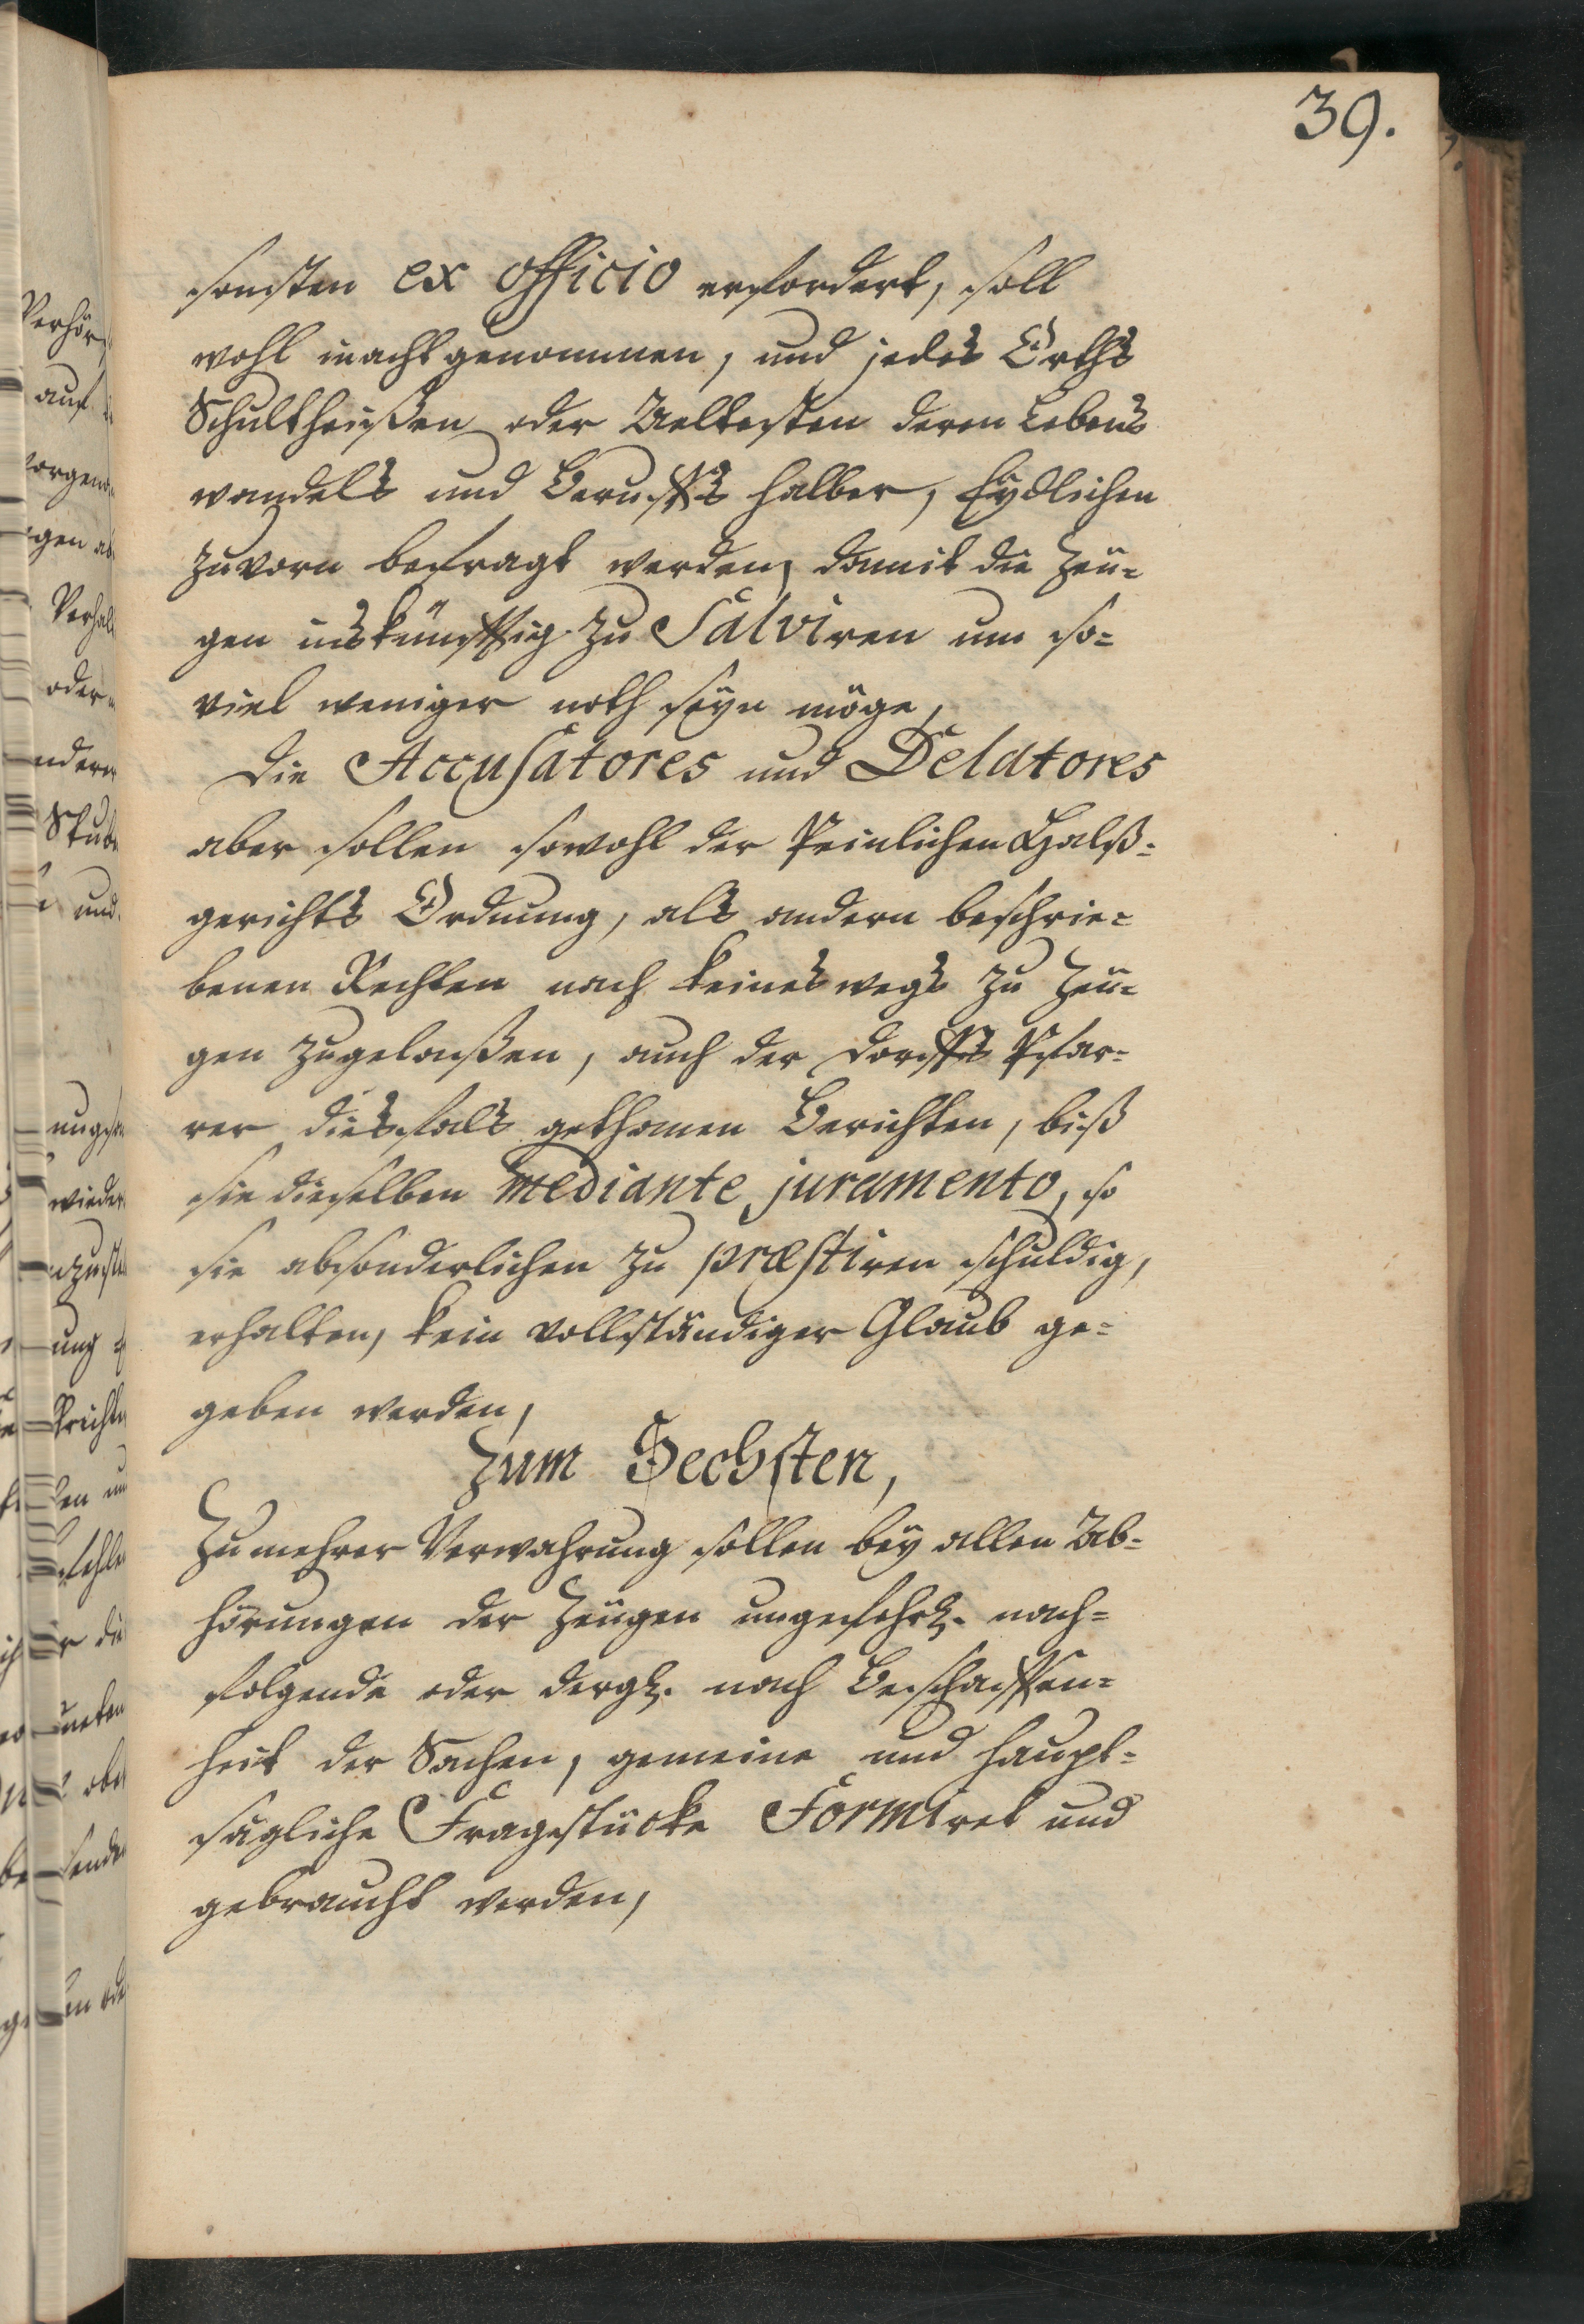 39.
sonsten ex officio erfordert, soll
wohl inacht genommen, und jedes Orths
Schultheißen oder Aeltesten deren Lebens
wandels und Beruffs halber, Eydlichen
zuvorn befragt werden, damit die Zeu=
gen inskünfftig zu Salviren um so=
viel weniger noth seyn möge,
Die Accusatores und Delatores
aber sollen sowohl der Peinlichen Halß=
gerichts Ordnung, als andern beschrie=
benen Rechten nach keines wegs zu Zeu=
gen zugelaußen, auch der Dorffs Pfar=
rer diesfals gethanen Berichten, biß
sie dieselben mediante juramento, so
sie absonderlichen zu præstiren schuldig,
erhalten, kein vollständiger Glaub ge=
geben werden,
Zum Sechsten,
Zu mehrer Verwahrung sollen bey allen Ab=
hörungen der Zeugen ungefehrl. nach=
folgende oder dergl. nach Beschaffen=
heit der Sachen, gemeine und haupt=
sägliche Fragestücke Formiret und
gebraucht werden,